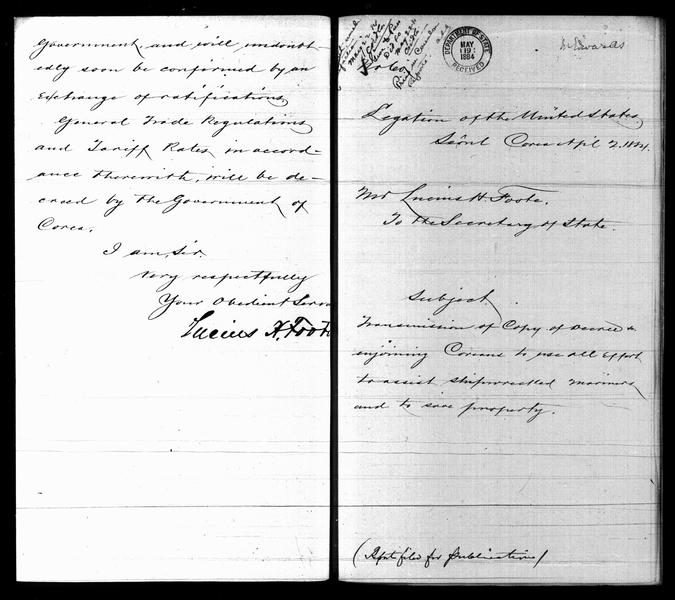 Government, and will, undoubt-
edly soon be confirmed by an
Exchange of ratifications,
General Trade Regulations
and Tariff Rates, in accord-
ance therewith, will be de-
creed by the Government of
Corea.
I am, Sir,
Very respectfully
Your Obedient Serva
Lucius H. Foote
DEPARTMENT OF STATE
MAY
19
1884
RECEIVED
Legation of the United States,
Seoul Corea Apl 2, 1884.
Mr Lucius H. Foote,
To the Secretary of State.
Subject
Transmission of Copy of Decree
enjoining Coreans to use all effort
to assist shipwrecked mariners
and to save property.
( for Publication)